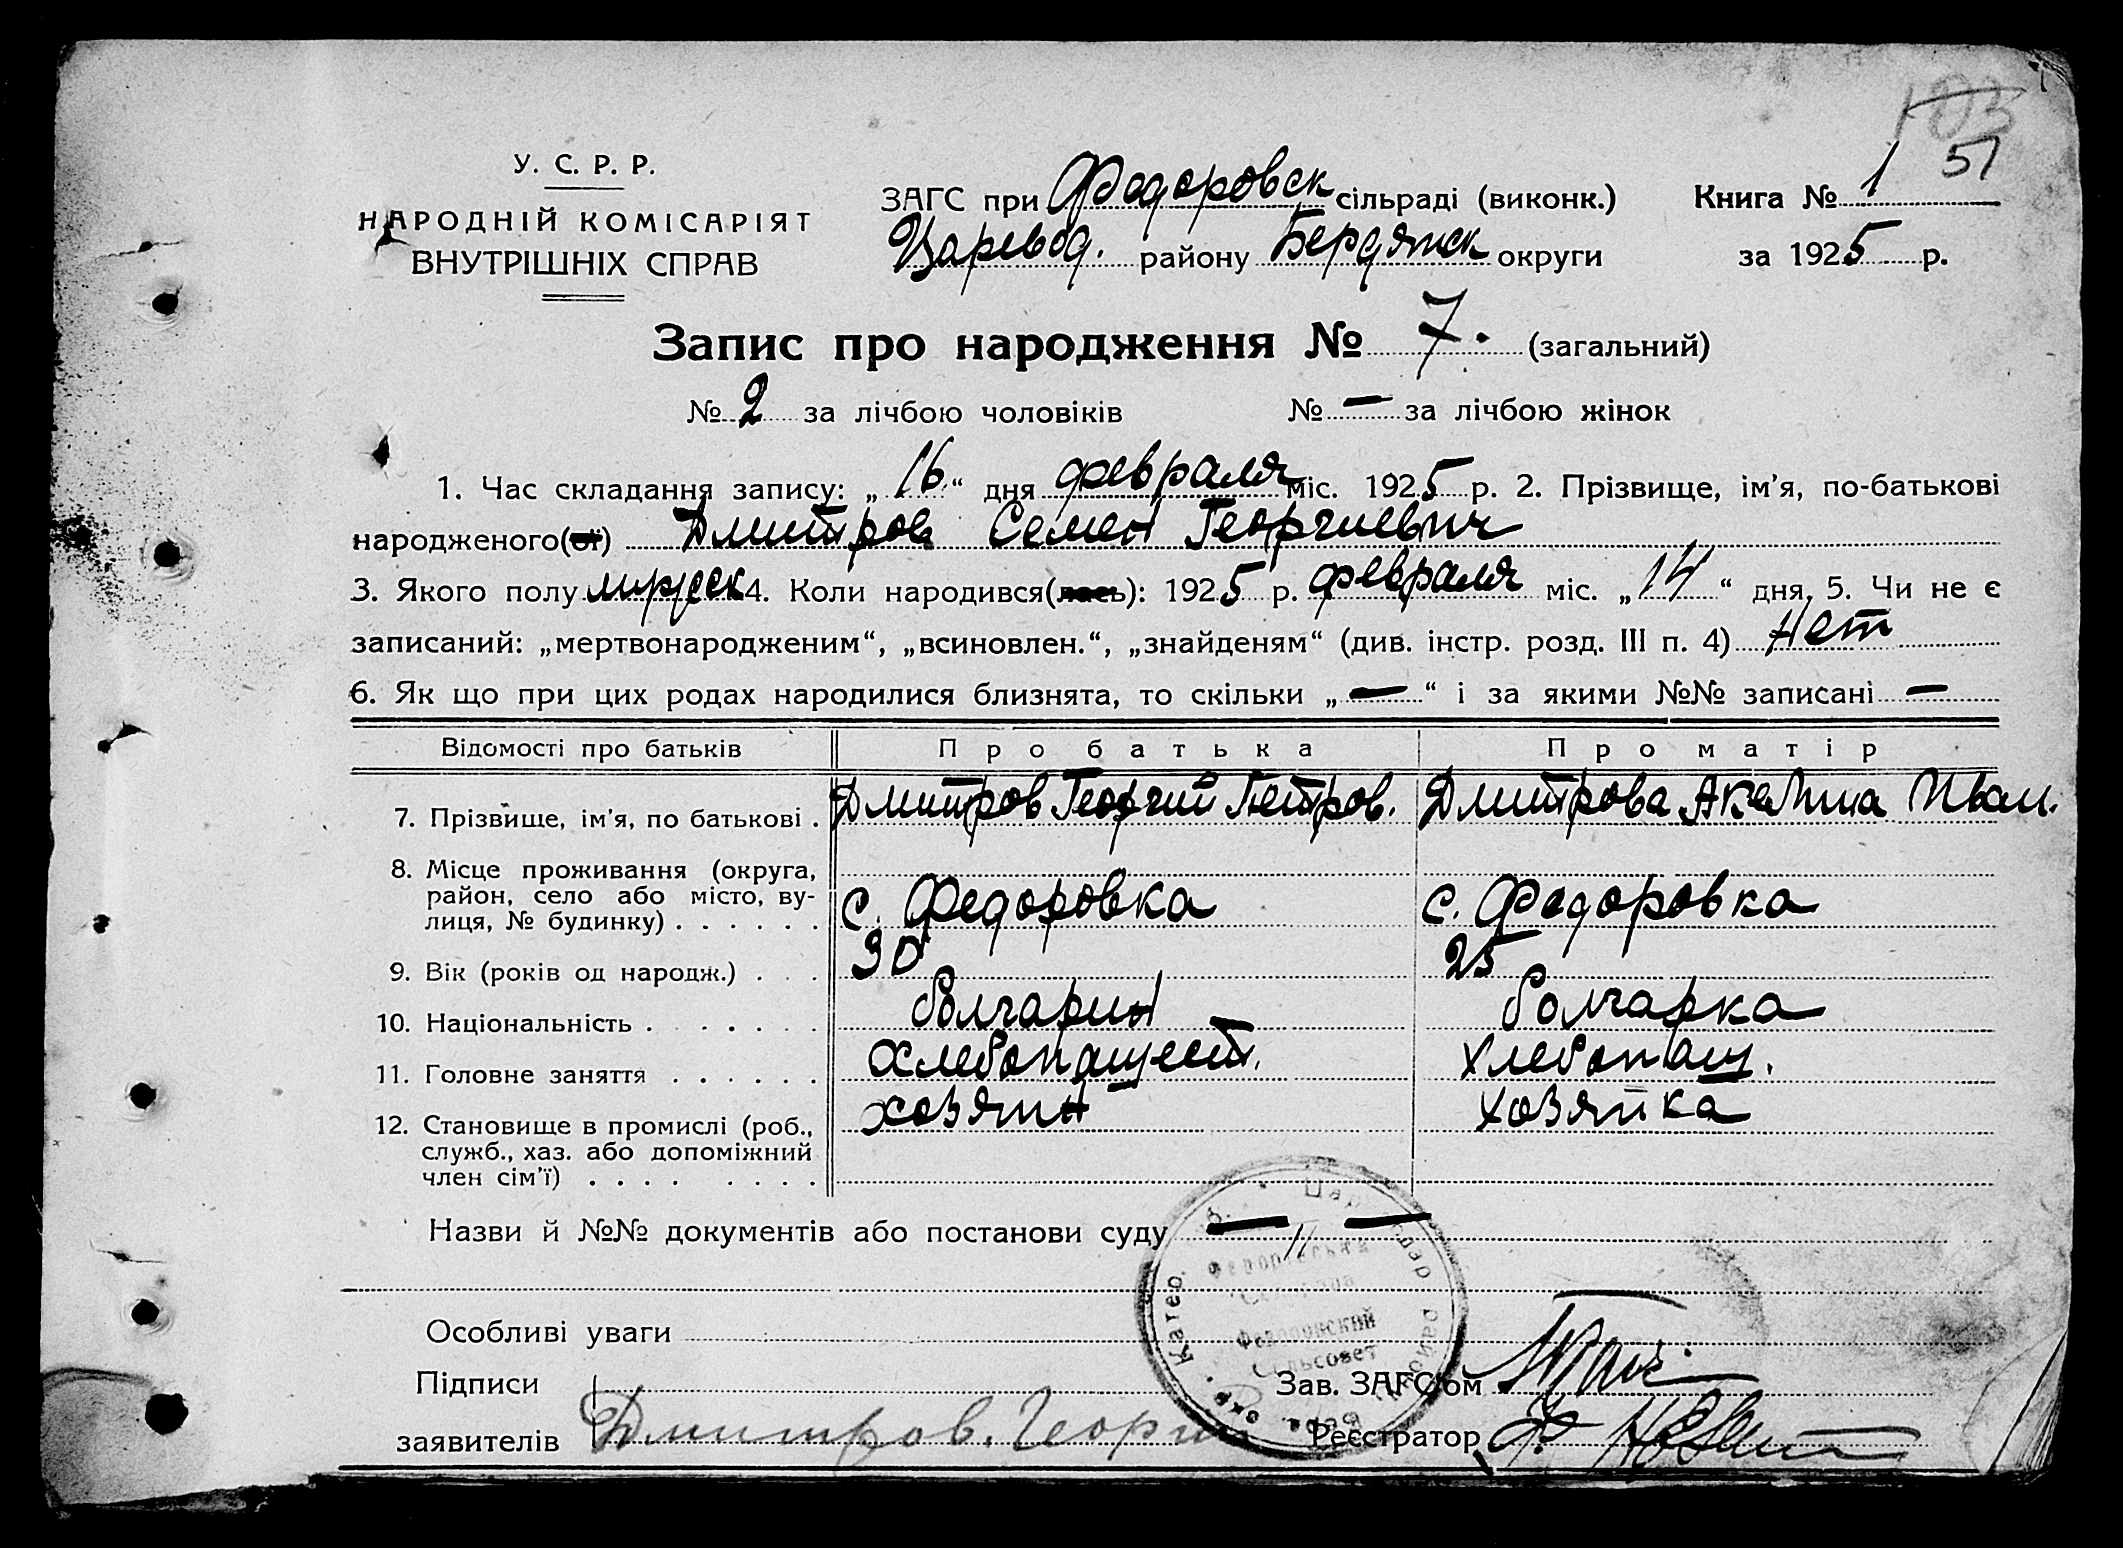 103
51
У. С. Р. Р.
НАРОДНІЙ КОМІСАРІЯТ
ВНУТРІШНІХ СПРАВ
ЗАГС при Федоровск сільраді (виконк.)
Царевод. району Бердянск округи
Книга № 1
за 1925 р.
Запис про народження № 7. (загальний)
№ 2 за лічбою чоловіків № — за лічбою жінок
1. Час складання запису: „16“ дня февраля міс. 1925 р. 2. Прізвище, ім’я, по-батькові
народженого(ої) Дмитров Семен Георгиевич
3. Якого полу мужск 4. Коли народився(лась): 1925 р. февраля міс. „14“ дня. 5. Чи не є
записаний: „мертвонародженим“, „всиновлен.“, „знайденям“ (див. інстр. розд. III п. 4) Нет
6. Як що при цих родах народилися близнята, то скільки „—“ і за якими №№ записані —
Відомості про батьків Про батька Про матір
7. Прізвище, ім’я, по батькові . Дмитров Георгий Петров. Дмитрова Акелина Иван.
8. Місце проживання (округа,
район, село або місто, ву-
лиця, № будинку) . . . . . . с. Федоровка с. Федоровка
9. Вік (років од народж.) . . . 30 25
10. Національність . . . . . . . болгарин болгарка
11. Головне заняття . . . . . . хлебопашест. хлебопаш.
12. Становище в промислі (роб., хозяин хозяйка
служб., хаз. або допоміжний
член сім’ї) . . . . . . . .
Назви й №№ документів або постанови суду — 〃 —
Федоровський
Сельсовет
Особливі уваги
Підписи
заявителів Дмитров. Георги
Зав. ЗАГС’ом
Реєстратор